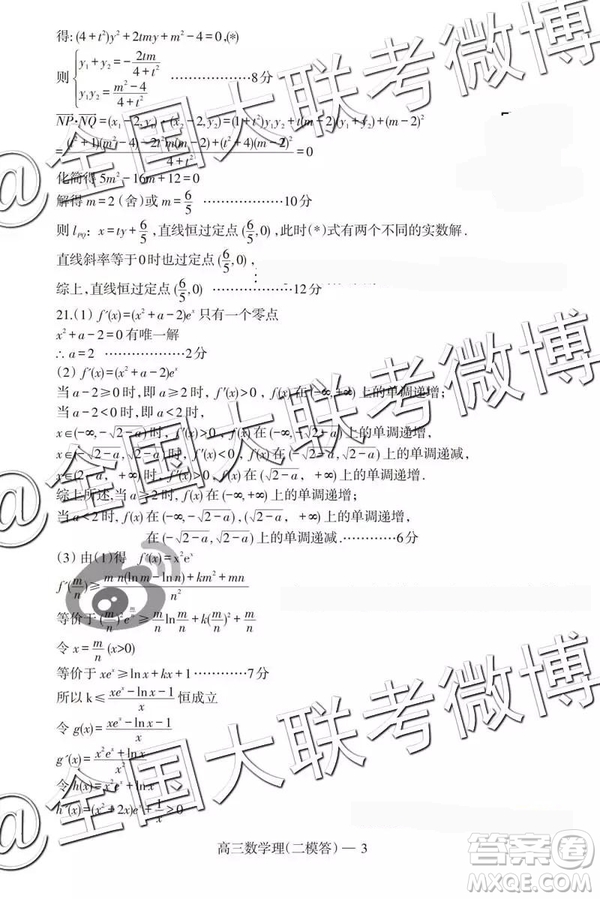 得:(4+t²)y²+2tmy+m²-4=0,(*)
则{y₁+y₂=-2tm/(4+t²) ………………8分
y₁y₂=(m²-4)/(4+t²)
NP·NQ=(x₁-2,y₁)·(x₂-2,y₂)=(1+t²)y₁y₂+t(m-2)(y₁+y₂)+(m-2)²
=((t²+1)(m²-4)-2t²m(m-2)+(t²+4)(m-2)²)/(4+t²)=0
化简得5m²-16m+12=0
解得m=2（舍)或m=6/5 ………………10分
则l_PQ：x=ty+6/5,直线恒过定点(6/5,0)，此时(*)式有两个不同的实数解.
直线斜率等于0时也过定点(6/5,0)，
综上,直线恒过定点(6/5,0) ………………12分
21.(1) f′(x)=(x²+a-2)eˣ只有一个零点
x²+a-2=0有唯一解
∴a=2 ……………2分
(2) f′(x)=(x²+a-2)eˣ
当a-2≥0时,即a≥2时, f′(x)>0，f(x)在(-∞,+∞)上的单调递增；
当a-2<0时,即a<2时,
x∈(-∞,-√2-a)时，f′(x)>0，f(x)在(-∞,-√2-a)上的单调递增,
x∈(-√2-a,√2-a)时，f′(x)<0，f(x)在(-√2-a,√2-a)上的单调递减,
x∈(√2-a，+∞)时，f′(x)>0，f(x)在(√2-a，+∞)上的单调递增.
综上所述,当a≥2时，f(x)在(-∞,+∞)上的单调递增；
当a<2时,f(x)在(-∞,-√2-a)，(√2-a，+∞)上的单调递增；
在(-√2-a,√2-a)上的单调递减.…………6分
(3) 由(1)得 f′(x)=x²eˣ
f′(m/n)≥(mn(lnm-lnn)+km²+mn)/n²
等价于(m/n)²e^(m/n)≥m/n ln m/n+k(m/n)²+m/n
令x=m/n (x>0)
等价于xeˣ≥lnx+kx+1 …………7分
所以k≤(xeˣ-lnx-1)/x恒成立
令g(x)=(xeˣ-lnx-1)/x
g′(x)=(x²eˣ+lnx)/x²
令h(x)=x²eˣ+lnx
h′(x)=(x²+2x)eˣ+1/x>0
高三数学理(二模答) — 3
@全国大联考微博
@全国大联考微博
@全国大联考微博
答案圈
MXQE.COM